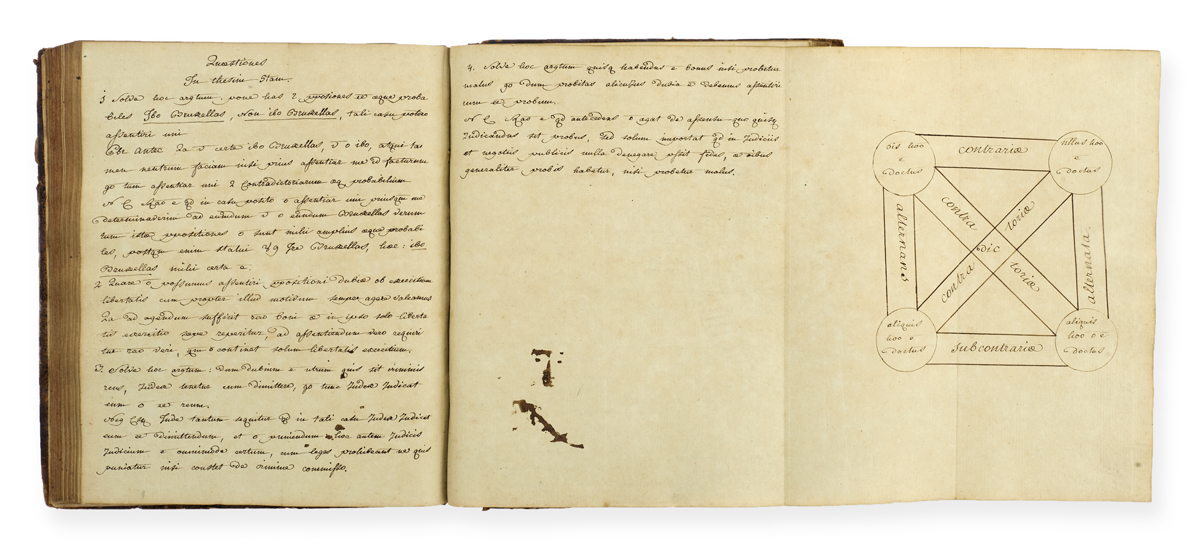 Quæstiones
In thesim 5tam.
solve hoc argtum. pone has 2 ppositiones ee æque proba
biles Ibo Bruxellas, Non ibo Bruxellas, tali casu potero
assentiri uni
antec certe ibo Bruxellas, v o ibo, atqui ta
men neutrum faciam nisi prius assentiar me id facturum
go tum assentiar uni 2 contradictoriarum æq probabilium
N C in casu posito o assentiar uni priusqm me
determinaverim ad eundum v o eundum Bruxellas verum
tum istæ ppositiones o sunt mihi amplius æque probabi
les, postqm enim statui Ire Bruxellas, hæc: ibo
Bruxellas mihi certa e.
2 Quare o possumus assentiri ppositioni dubiæ ob exercitium
libertatis cum propter illud motivum semper agere valeamus
ad agendum sufficit rao boni æ in ipso solo liberta
tis exercitio sæpe reperitur, ad assentiendum vero requiri
tur rao veri, qm o continet solum libertatis exercitium.
3. Solve hoc argtum: dum dubium e utrum quis sit criminis
reus, Judex tenetur eum dimittere, go tunc Judex Judicat
eum o ee reum.
Neg Csq Inde tantum sequitur qd in tali casu Judex Judicet
eum ee dimittendum, et o puniendum hoc autem Judicis
Judicium e omnimode certum, cum leges prohibeant ne quis
puniatur nisi constet de crimine commisso.
4. Solve hoc argtum quisq habendus e bonus nisi probetur
malus go dum probitas alicujus dubia e debemus assentiri
eum ee probum.
N C Rao e qd antecedens o agat de assensu quo quisq
Judicandus sit probus, sed solum importat qd in Judiciis
et negotiis publicis nulla denegari possit fides, æ
generaliter probis habetur, nisi probetur malus.
ois hoo
e
doctus
contrariæ
nllus hoo
e
doctus
alternans
contra
toriæ
dic
contra
toriæ
alternata.
aliquis
hoo e
doctus
subcontrariæ
aliquis
hoo o e
doctus